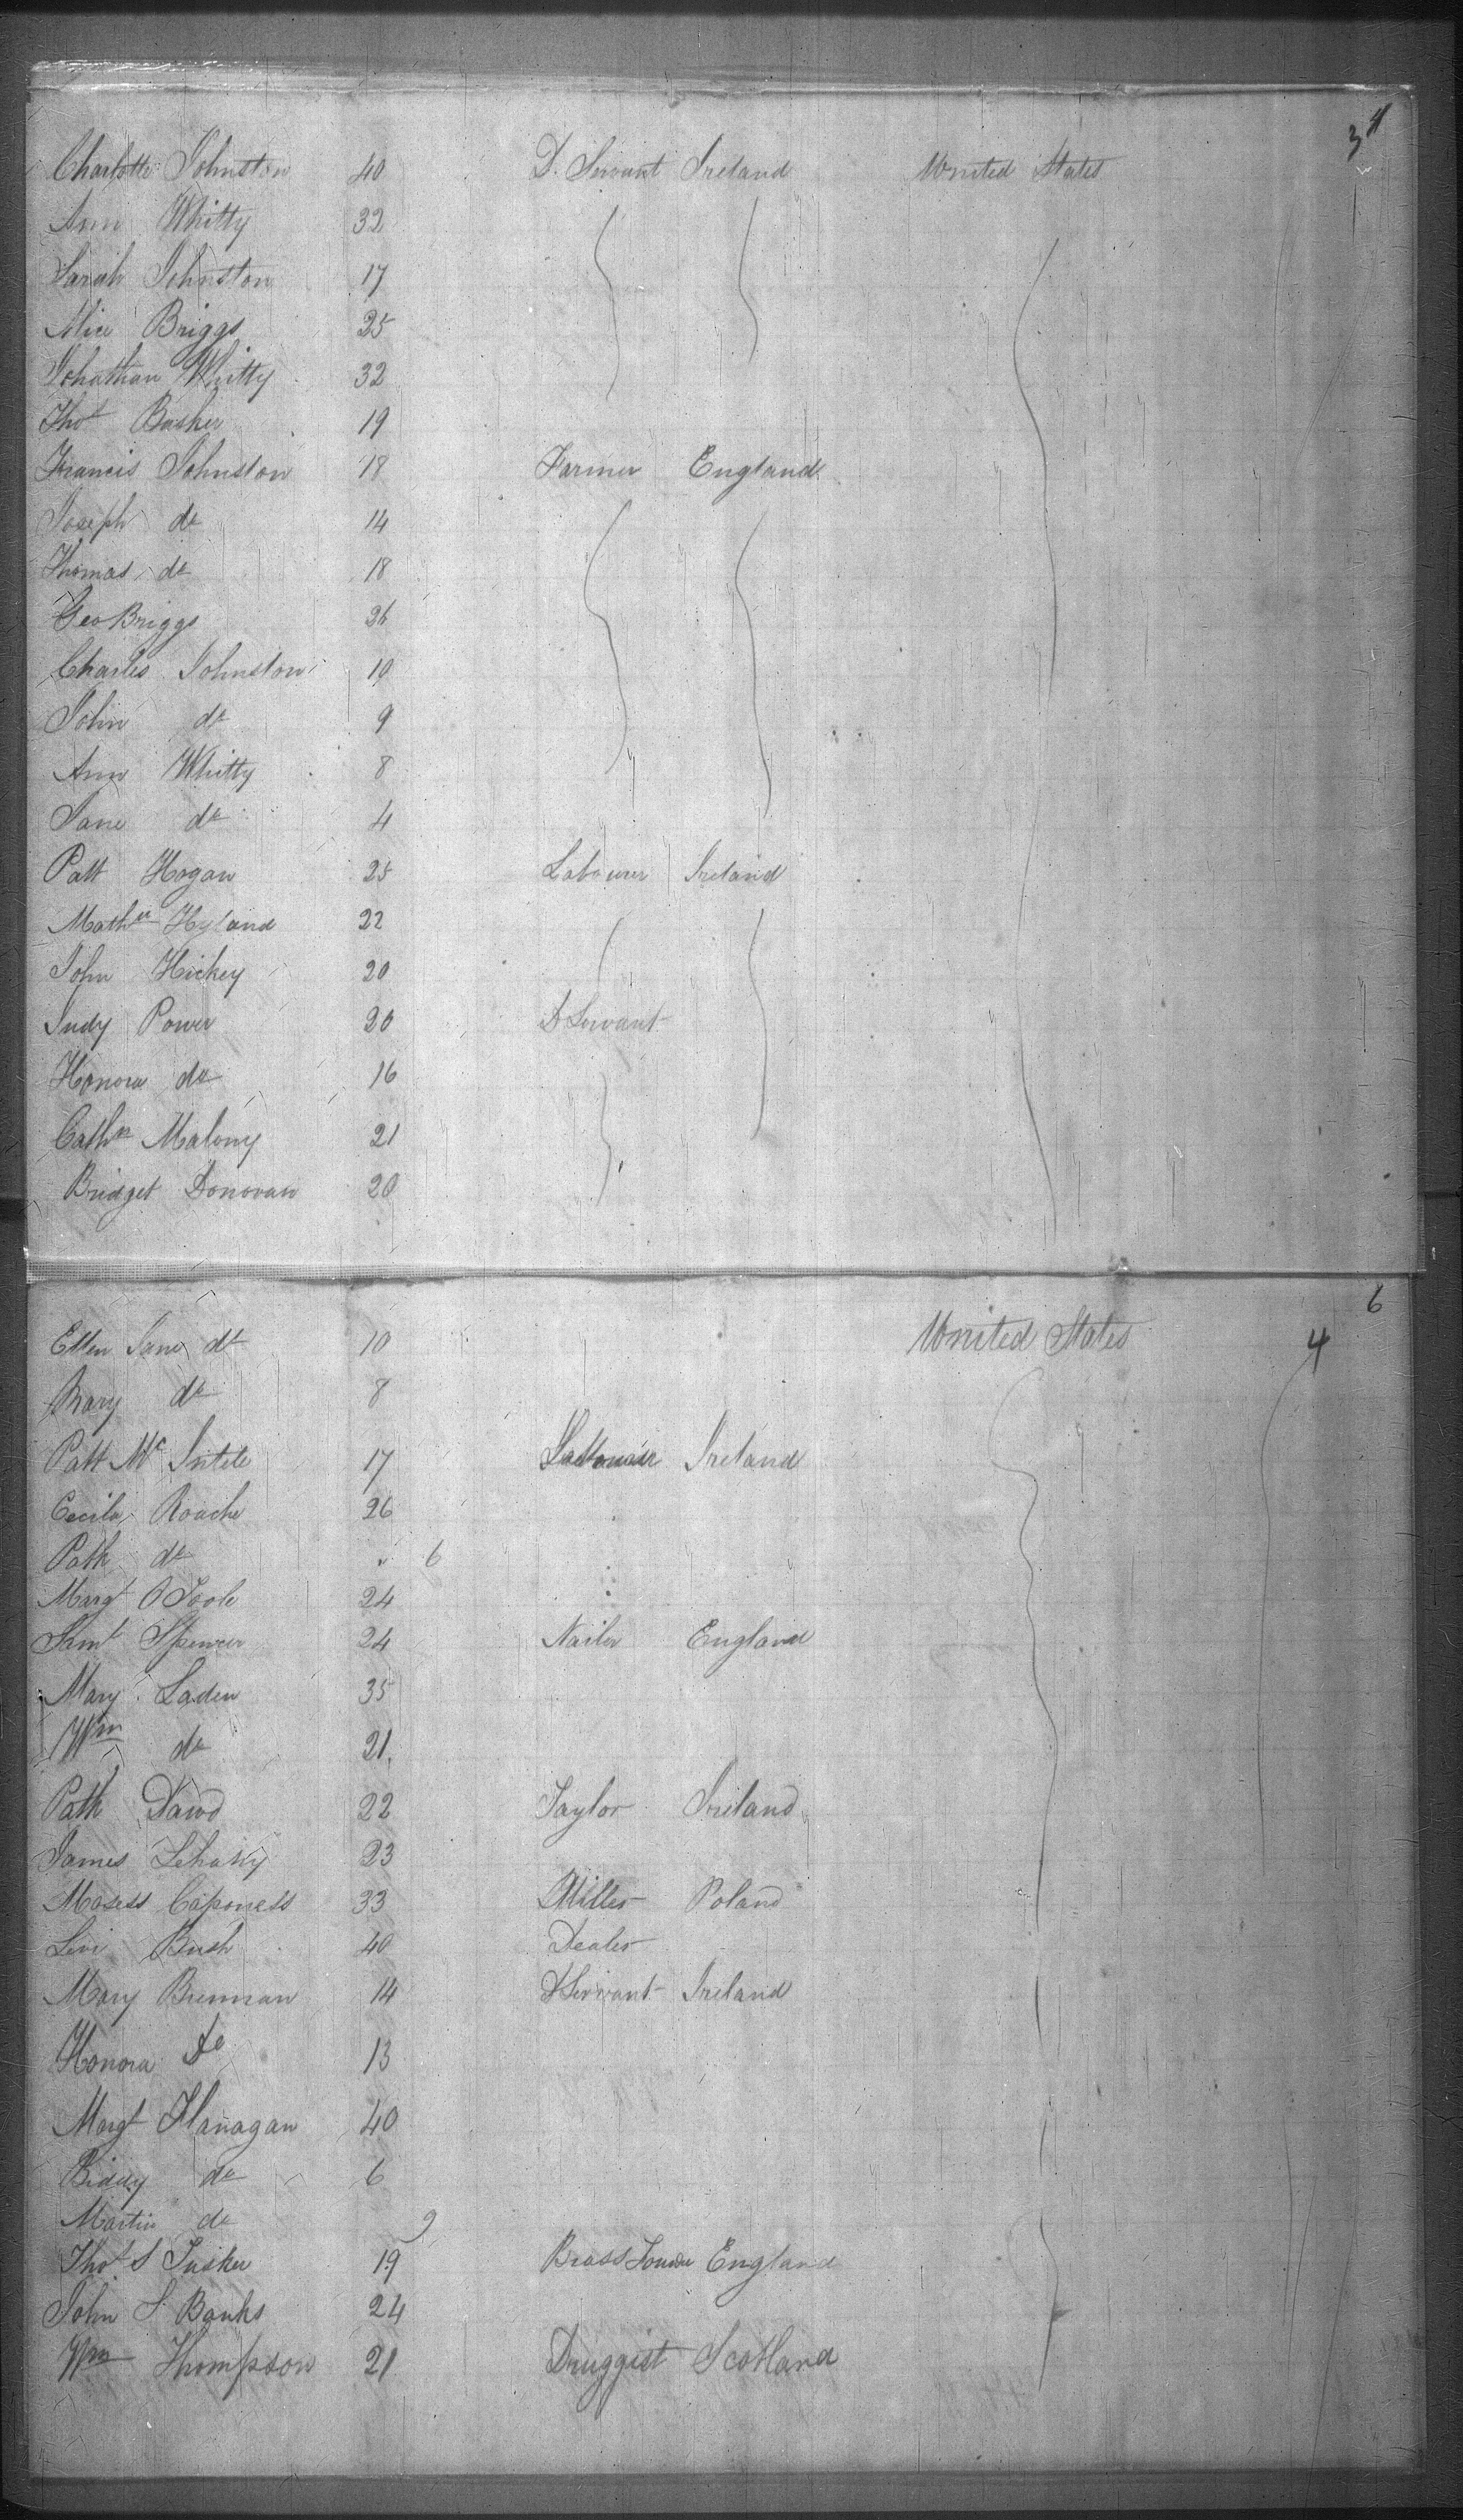 3 4
Charlotte Johnston 40 D. Servant Ireland United States
Ann Whitty 32
Sarah Johnston 17
Alice Briggs 25
Johathan Whitty 32
Thos Basker 19
Francis Johnston 18 Farmer England
Joseph do 14
Thomas do 18
Geo Briggs 26
Charles Johnston 10
John do 9
Ann Whitty 8
Jane do 4
Patt Hogan 25 Labourer Ireland
Mathw Hyland 22
John Hickey 20
Judy Power 20 D Servant
Honora do 16
Cathn Malony 21
Bridget Donovan 20
6
Ellen Jane do 10 United States 4
Mary do 8
Patt Mc 17 Labourer Ireland
Cecila Roache 26
Path do 6
Margt O Toole 24
Saml Spencer 24 Nailer England
Mary Laden 35
Wm do 21
Path 22 Taylor Ireland
James 23
Mosess Caponess 33 Miller Poland
Levi Bush 40 Dealer
Mary Brennan 14 D Servant Ireland
Honora Do 13
Margt Flanagan 40
Biddy do 6
Martin do 9
Thos S Tusker 19 Brass England
John S. Banks 24
Wm Thompson 21 Druggist Scotland